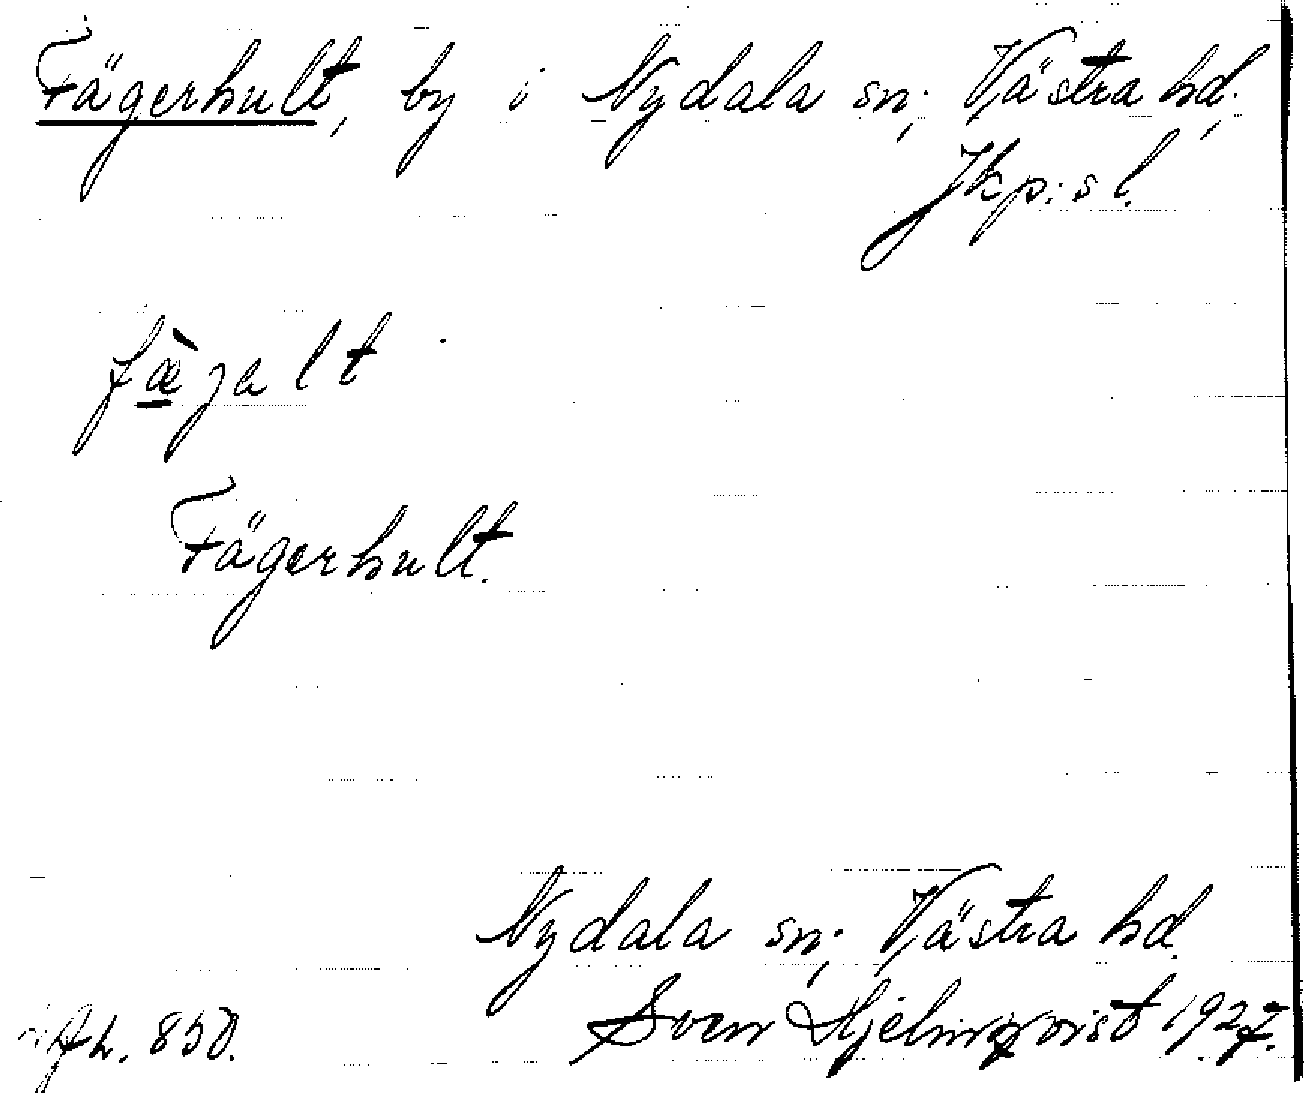 Fägerhult, by i Nydala sn; Västra hd.,
Jkp:s l.
fæ̀jalt
Fägerhult.
Nydala sn; Västra hd.
850. Sven Hjelmqvist 1927.